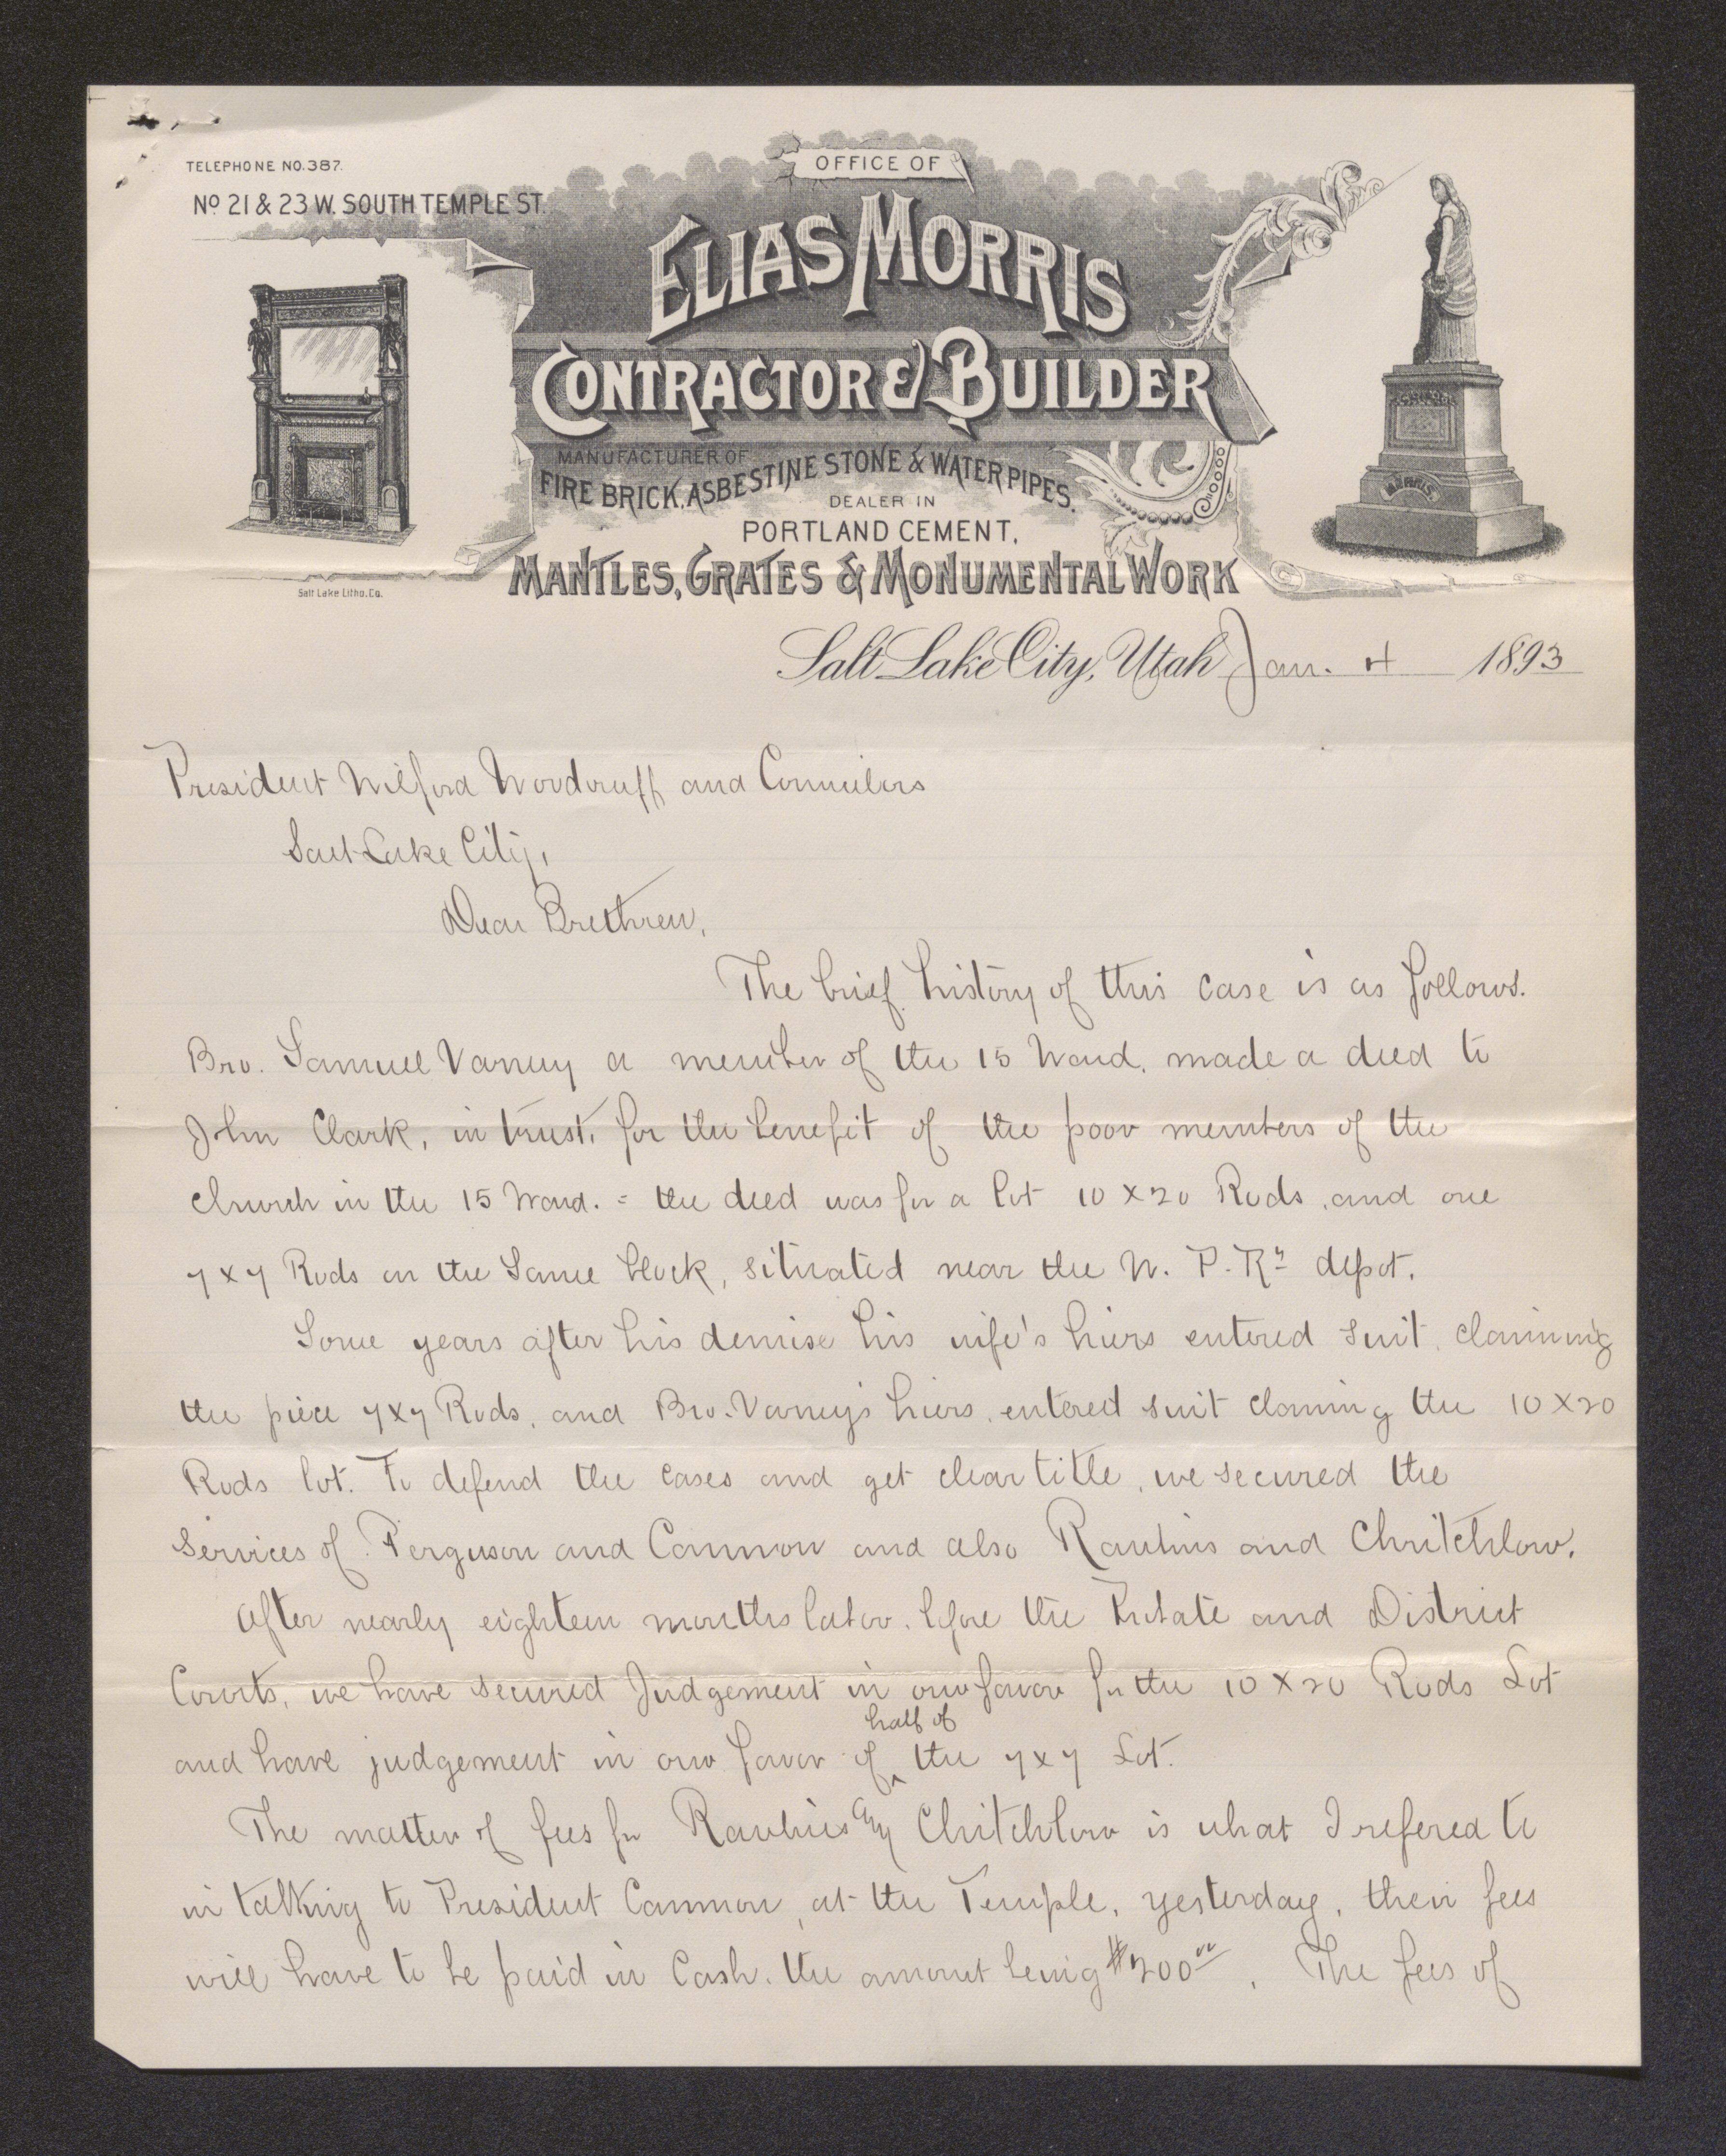 TELEPHONE NO. 387.
Nº 21 & 23 W. SOUTH TEMPLE ST.
OFFICE OF
ELIAS MORRIS
CONTRACTOR & BUILDER
MANUFACTURER OF
FIRE BRICK, ASBESTINE STONE & WATER PIPES.
DEALER IN
PORTLAND CEMENT,
MANTLES, GRATES & MONUMENTAL WORK
MORRIS
Salt Lake Litho. Co.
Salt Lake City, Utah Jan. 4 1893
President Wilford Woodruff and Councilers
Salt Lake City,
Dear Brethren,
The brief history of this case is as follows.
Bro. Samuel Varney a member of the 15 Ward, made a deed to
John Clark, in trust, for the benefit of the poor members of the
church in the 15 Ward. = the deed was for a lot 10 X 20 Rods, and one
7 x 7 Rods on the Same block, situated near the N. P. Ry depot.
Some years after his demise his wife's hiers entered suit, claiming
the piece 7x7 Rods, and Bro. Varney's hiers, entered suit claming the 10 X 20
Rods lot. To defend the cases and get clear title, we secured the
Services of Ferguson and Cannon and also Rawlins and Chritchlow.
After nearly eighteen months labor, before the Probate and District
Courts, we have secured Judgement in our favor for the 10 X 20 Rods Lot
and have judgement in our favor of half of the 7 x 7 Lot.
The matter of fees for Rawlins & Chritchlow is what I refered to
in talking to President Cannon, at the Temple, yesterday, their fees
will have to be paid in Cash. the amount being $200 00. The fees of